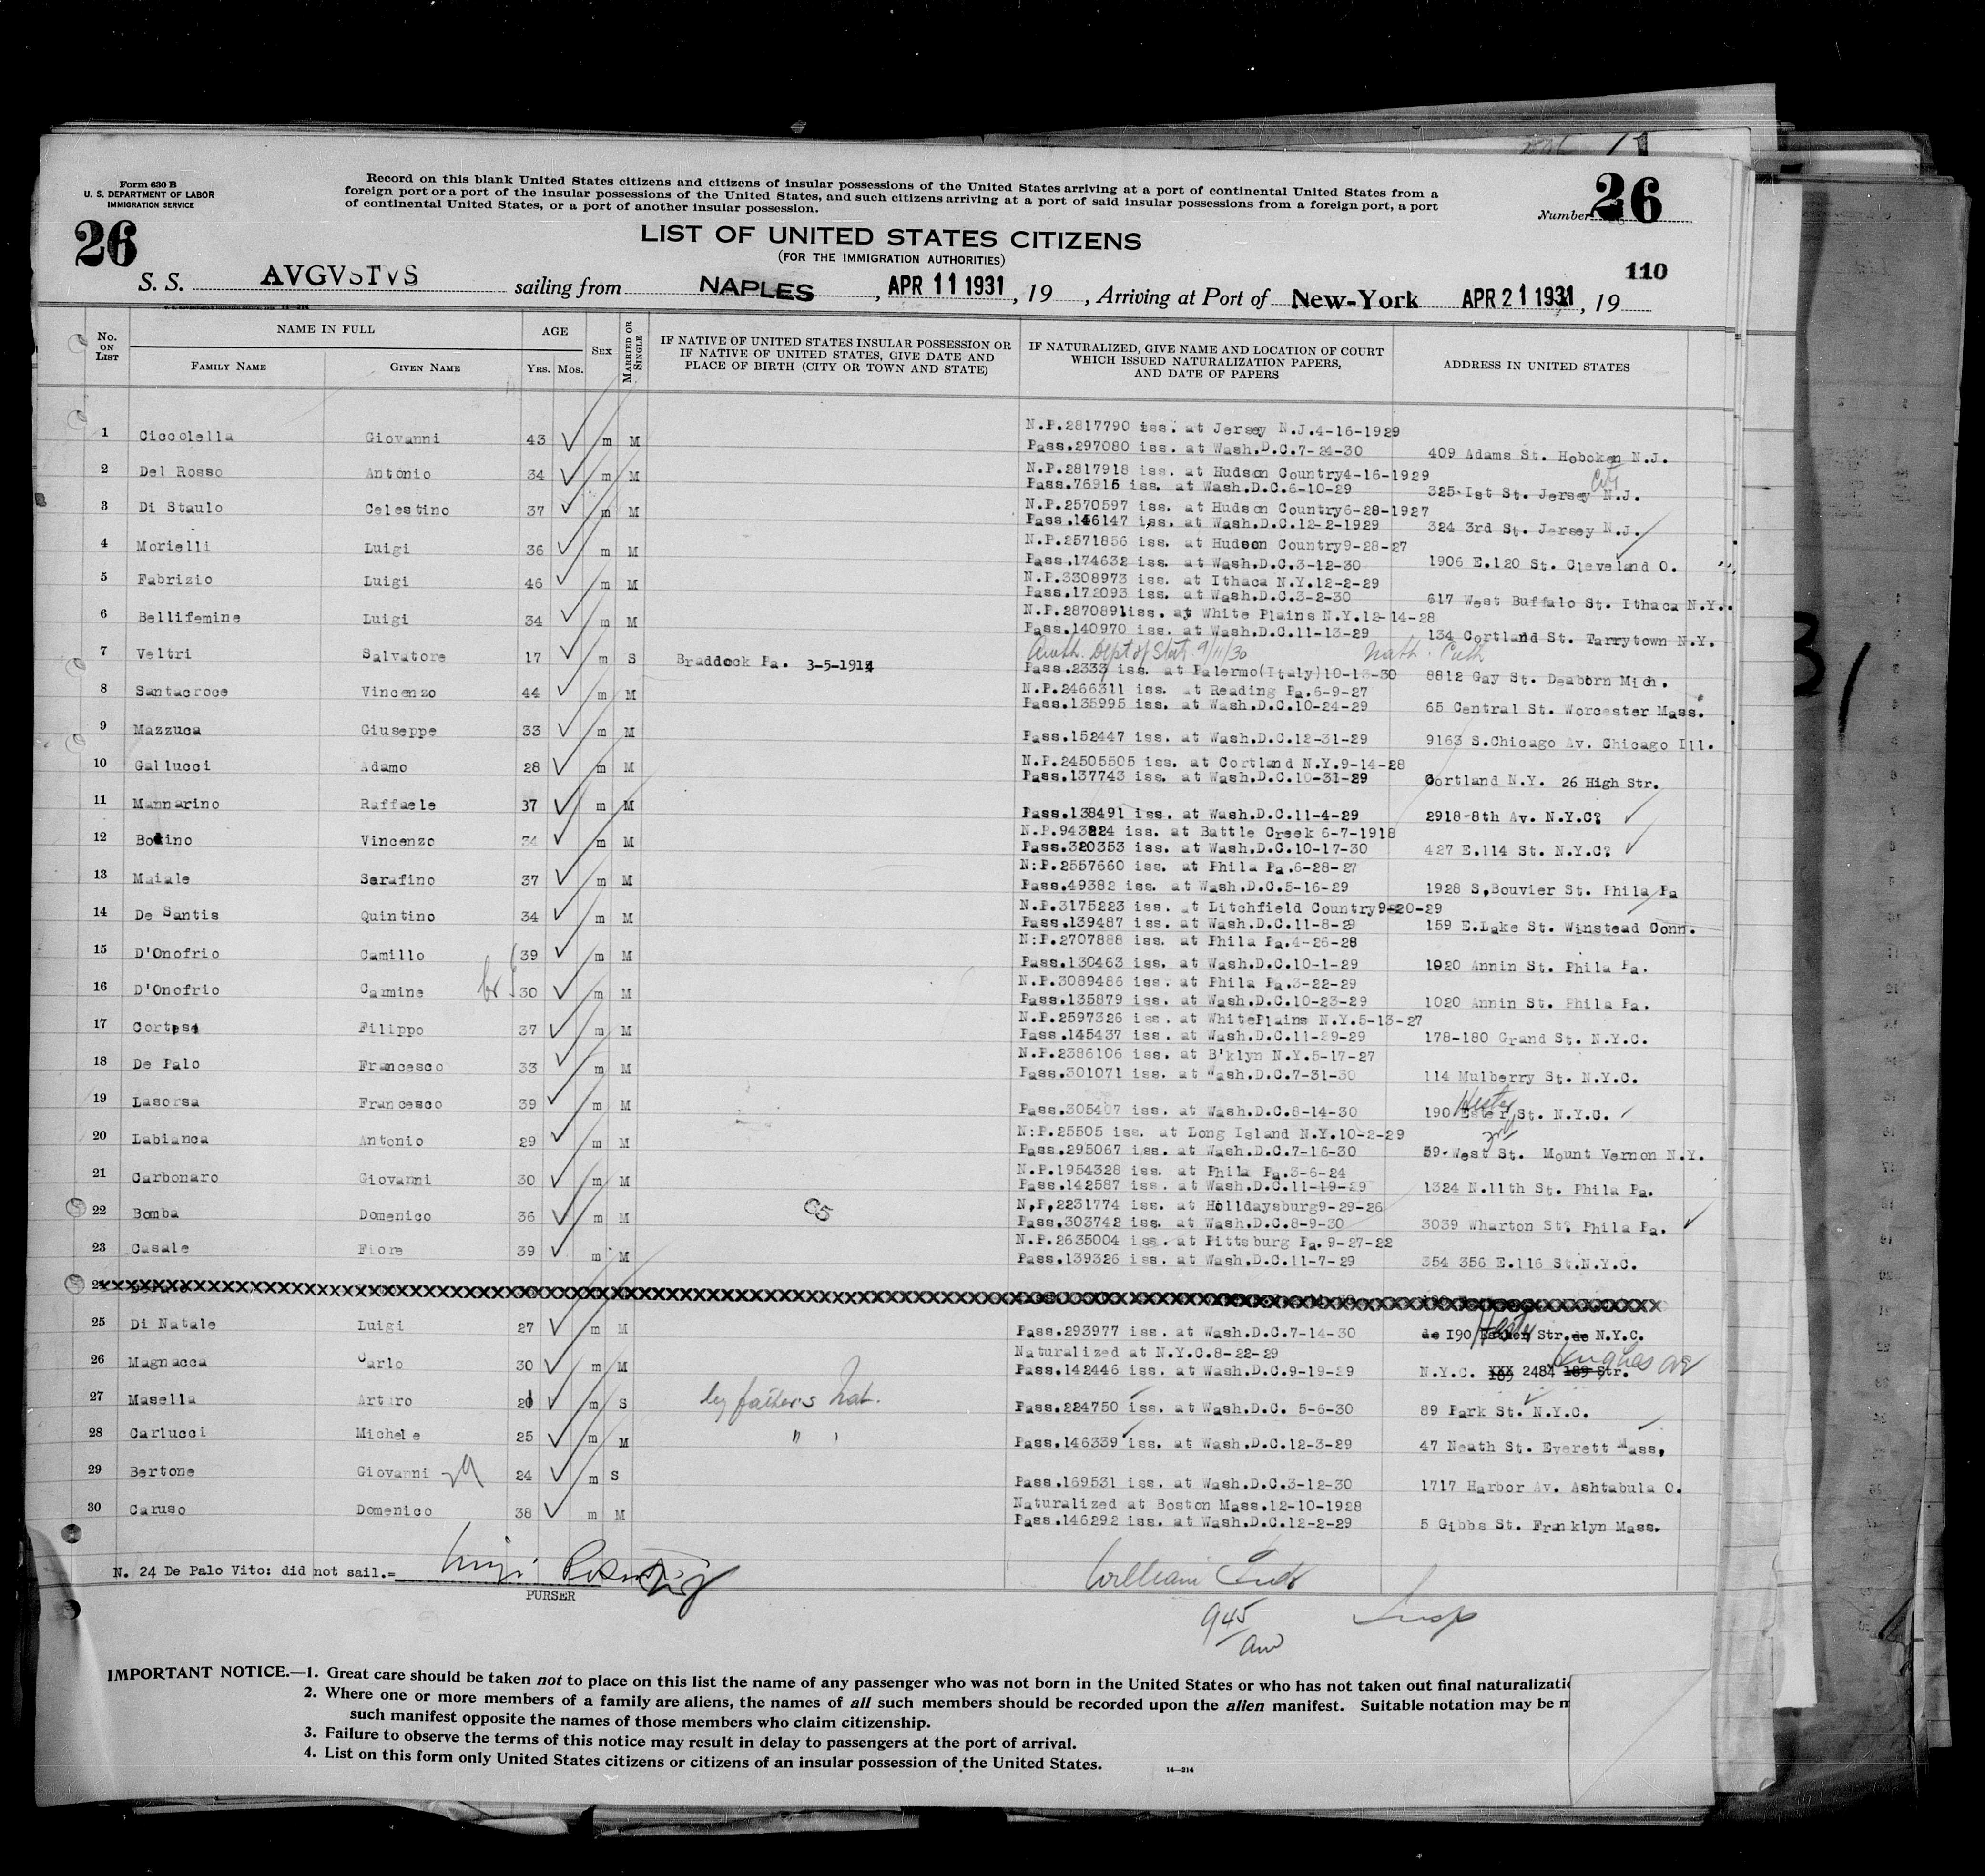 Form 630 B
U. S. DEPARTMENT OF LABOR
IMMIGRATION SERVICE
Record on this blank United States citizens and citizens of insular possessions of the United States arriving at a port of continental United States from a
foreign port or a port of the insular possessions of the United States, and such citizens arriving at a port of said insular possessions from a foreign port, a port
of continental United States, or a port of another insular possession.
Number 26
26
LIST OF UNITED STATES CITIZENS
(FOR THE IMMIGRATION AUTHORITIES)
110
S. S. AVGVSTVS sailing from NAPLES, APR 11 1931, 19 , Arriving at Port of New-York APR 21 1931, 19
No. ON LIST NAME IN FULL AGE SEX MARRIED OR SINGLE IF NATIVE OF UNITED STATES INSULAR POSSESSION OR IF NATIVE OF UNITED STATES, GIVE DATE AND PLACE OF BIRTH (CITY OR TOWN AND STATE) IF NATURALIZED, GIVE NAME AND LOCATION OF COURT WHICH ISSUED NATURALIZATION PAPERS, AND DATE OF PAPERS ADDRESS IN UNITED STATES
FAMILY NAME GIVEN NAME YRS. MOS.
N.P.2817790 iss. at Jersey N.J.4-16-1929
1 Ciccolella Giovanni 43 m M Pass.297080 iss. at Wash.D.C.7-24-30 409 Adams St. Hoboken N.J.
N.P.2817918 iss. at Hudson Country4-16-1929
2 Del Rosso Antonio 34 m M Pass.76915 iss. at Wash.D.C.6-10-29 325 Ist St. Jersey City N.J.
N.P.2570597 iss. at Hudson Country6-28-1927
3 Di Staulo Celestino 37 m M Pass.146147 iss. at Wash.D.C.12-2-1929 324 3rd St. Jersey N.J.
N.P.2571856 iss. at Hudson Country9-28-27
4 Morielli Luigi 36 m M Pass.174632 iss. at Wash.D.C.3-12-30 1906 E.120 St. Cleveland O.
N.P.3308973 iss. at Ithaca N.Y.12-2-29
5 Fabrizio Luigi 46 m M Pass.172093 iss. at Wash.D.C.3-2-30 617 West Buffalo St. Ithaca N.Y.
N.P.2870891iss. at White Plains N.Y.12-14-28
6 Bellifemine Luigi 34 m M Pass.140970 iss. at Wash.D.C.11-13-29 134 Cortland St. Tarrytown N.Y.
Auth. Dept of Stat. 9/11/30
7 Veltri Salvatore 17 m S Braddock Pa. 3-5-1914 Pass.2333 iss. at Palermo(Italy)10-13-30 8812 Gay St. Deaborn Mich.
N.P.2466311 iss. at Reading Pa.6-9-27
8 Santacroce Vincenzo 44 m M Pass.135995 iss. at Wash.D.C.10-24-29 65 Central St. Worcester Mass.
9 Mazzuca Giuseppe 33 m M Pass.152447 iss. at Wash.D.C.12-31-29 9163 S.Chicago Av. Chicago Ill.
N.P.24505505 iss. at Cortland N.Y.9-14-28
10 Gallucci Adamo 28 m M Pass.137743 iss. at Wash.D.C.10-31-29 Cortland N.Y. 26 High Str.
11 Mannarino Raffaele 37 m M Pass.138491 iss. at Wash.D.C.11-4-29 2918-8th Av. N.Y.C?
N.P.943824 iss. at Battle Creek 6-7-1918
12 Vincenzo 34 m M Pass.320353 iss. at Wash.D.C.10-17-30 427 E.114 St. N.Y.C?
N:P.2557660 iss. at Phila Pa.6-28-27
13 Maiale Serafino 37 m M Pass.49382 iss. at Wash.D.C.5-16-29 1928 S,Bouvier St. Phila Pa
N.P.3175223 iss. at Litchfield Country9-20-29
14 De Santis Quintino 34 m M Pass.139487 iss. at Wash.D.C.11-8-29 159 E.Lake St. Winstead Conn.
N:P.2707888 iss. at Phila Pa.4-26-28
15 D'Onofrio Camillo 39 m M Pass.130463 iss. at Wash.D.C.10-1-29 1020 Annin St. Phila Pa.
N.P.3089486 iss. at Phila Pa.3-22-29
16 D'Onofrio Carmine br 30 m M Pass.135879 iss. at Wash.D.C.10-23-29 1020 Annin St. Phila Pa.
N.P.2597326 iss. at WhitePlains N.Y.5-13-27
17 Cortese Filippo 37 m M Pass.145437 iss. at Wash.D.C.11-29-29 178-180 Grand St. N.Y.C.
N.P.2386106 iss. at B'klyn N.Y.5-17-27
18 De Palo Francesco 33 m M Pass.301071 iss. at Wash.D.C.7-31-30 114 Mulberry St. N.Y.C.
19 Lasorsa Francesco 39 m M Pass.305407 iss. at Wash.D.C.8-14-30 190 Ester Hester St. N.Y.C.
N:P.25505 iss. at Long Island N.Y.10-2-29
20 Labianca Antonio 29 m M Pass.295067 iss. at Wash.D.C.7-16-30 59 West St. Mount Vernon N.Y.
N.P.1954328 iss. at Phila Pa.3-6-24
21 Carbonaro Giovanni 30 m M Pass.142587 iss. at Wash.D.C.11-19-29 1324 N.11th St. Phila Pa.
N,P,2231774 iss. at Holldaysburg9-29-26
22 Bomba Domenico 36 m M Pass.303742 iss. at Wash.D.C.8-9-30 3039 Wharton St? Phila Pa.
N.P.2635004 iss. at Pittsburg Pa.9-27-22
23 Casale Fiore 39 m M Pass.139326 iss. at Wash.D.C.11-7-29 354 356 E.116 St.N.Y.C.
24
25 Di Natale Luigi 27 m M Pass.293977 iss. at Wash.D.C.7-14-30 de I90 Hester Str.de N.Y.C.
Naturalized at N.Y.C.8-22-29
26 Magnacca Carlo 30 m M Pass.142446 iss. at Wash.D.C.9-19-29 N.Y.C. XXX 189 2484 189 Str. Hughes ave
27 Masella Arturo m S by father's Nat. Pass.224750 iss. at Wash.D.C. 5-6-30 89 Park St. N.Y.C.
28 Carlucci Michele 25 m M " " Pass.146339 iss. at Wash.D.C.12-3-29 47 Neath St. Everett Mass,
29 Bertone Giovanni 24 m S Pass.169531 iss. at Wash.D.C.3-12-30 1717 Harbor Av. Ashtabula O.
Naturalized at Boston Mass.12-10-1928
30 Caruso Domenico 38 m M Pass.146292 iss. at Wash.D.C.12-2-29 5 Gibbs St. Franklyn Mass.
N. 24 De Palo Vito: did not sail.= Luigi
PURSER
William
945
am
Insp
IMPORTANT NOTICE.—1. Great care should be taken not to place on this list the name of any passenger who was not born in the United States or who has not taken out final naturalizati
2. Where one or more members of a family are aliens, the names of all such members should be recorded upon the alien manifest. Suitable notation may be m
such manifest opposite the names of those members who claim citizenship.
3. Failure to observe the terms of this notice may result in delay to passengers at the port of arrival.
4. List on this form only United States citizens or citizens of an insular possession of the United States.
14—214